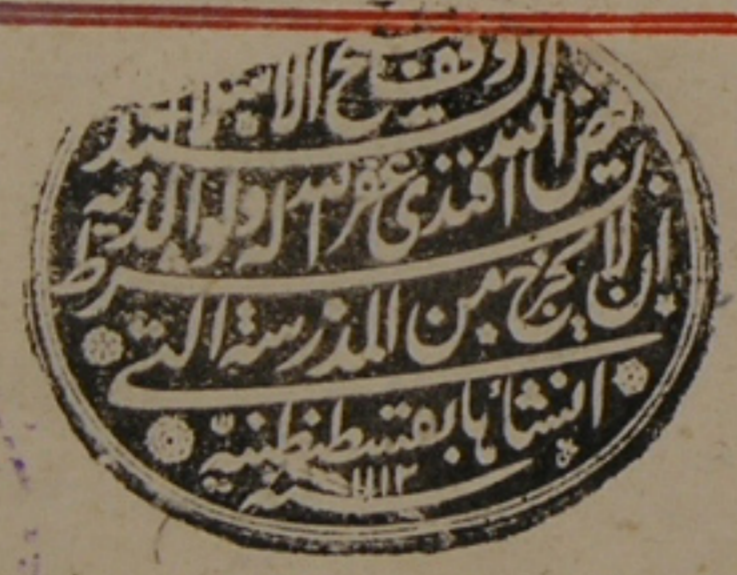 وقف شيخ الاسلام السيد
فيض الله افندى غفر الله له ولوالديه بشرط
ان لا يخرج من المدرسة التى
انشأها بقسطنطنيّة
سنة ١١١٢